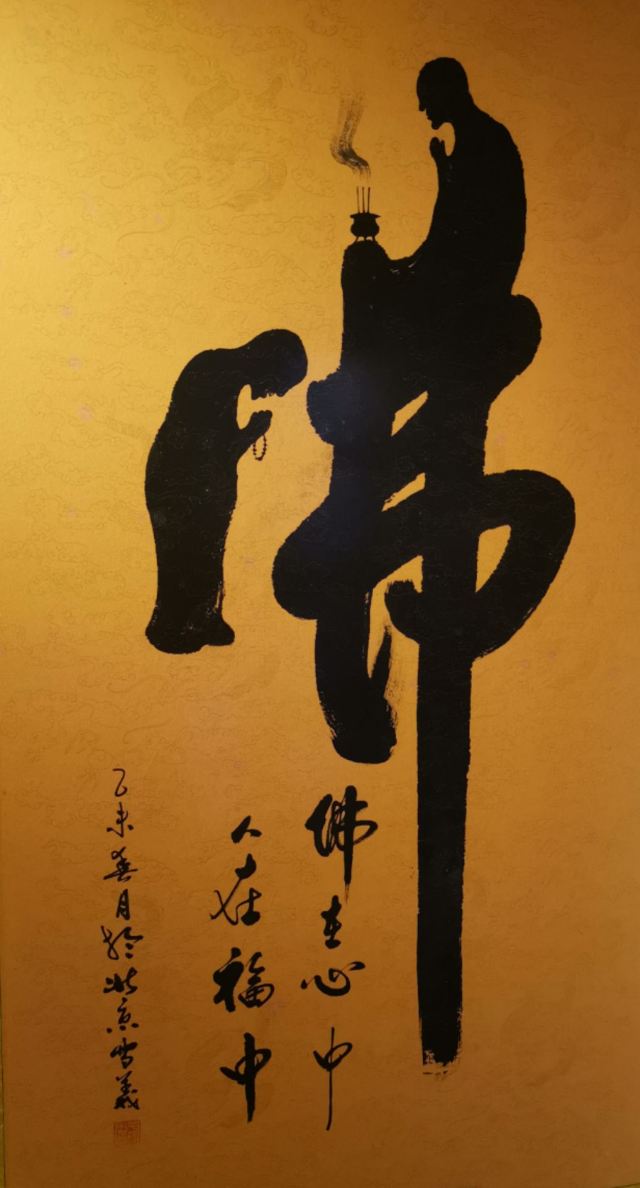 佛
佛在心中
人在福中
乙未春月於北京